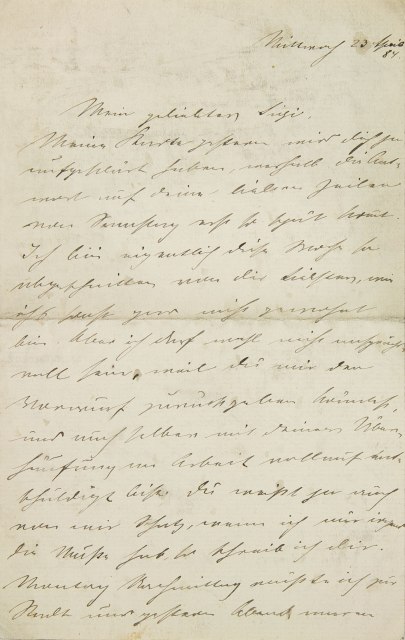 Mittwoch 23 April
84
Mein geliebter Luzi,
Meine Karte gestern wird dich ja
aufgeklärt haben, weshalb die Ant-
wort auf deine lieben Zeilen
vom Samstag erst so spät kommt.
Ich bin eigentlich diese Woche so
abgeschnitten von dir Liebsten, wie
ich's sonst gar nicht gewohnt
bin. Aber ich darf wohl nicht
voll sein, weil du mir den
Vorwurf zurückgeben könntest,
und auch selber mit deiner Über-
häufung an Arbeit vollauf ent-
schuldigt bist. Du weißt ja auch
von mir Schatz, wenn ich nur
die Muße hab, so schreib ich dir.
Montag Nachmittag mußte ich zur
Stadt und gestern Abend waren